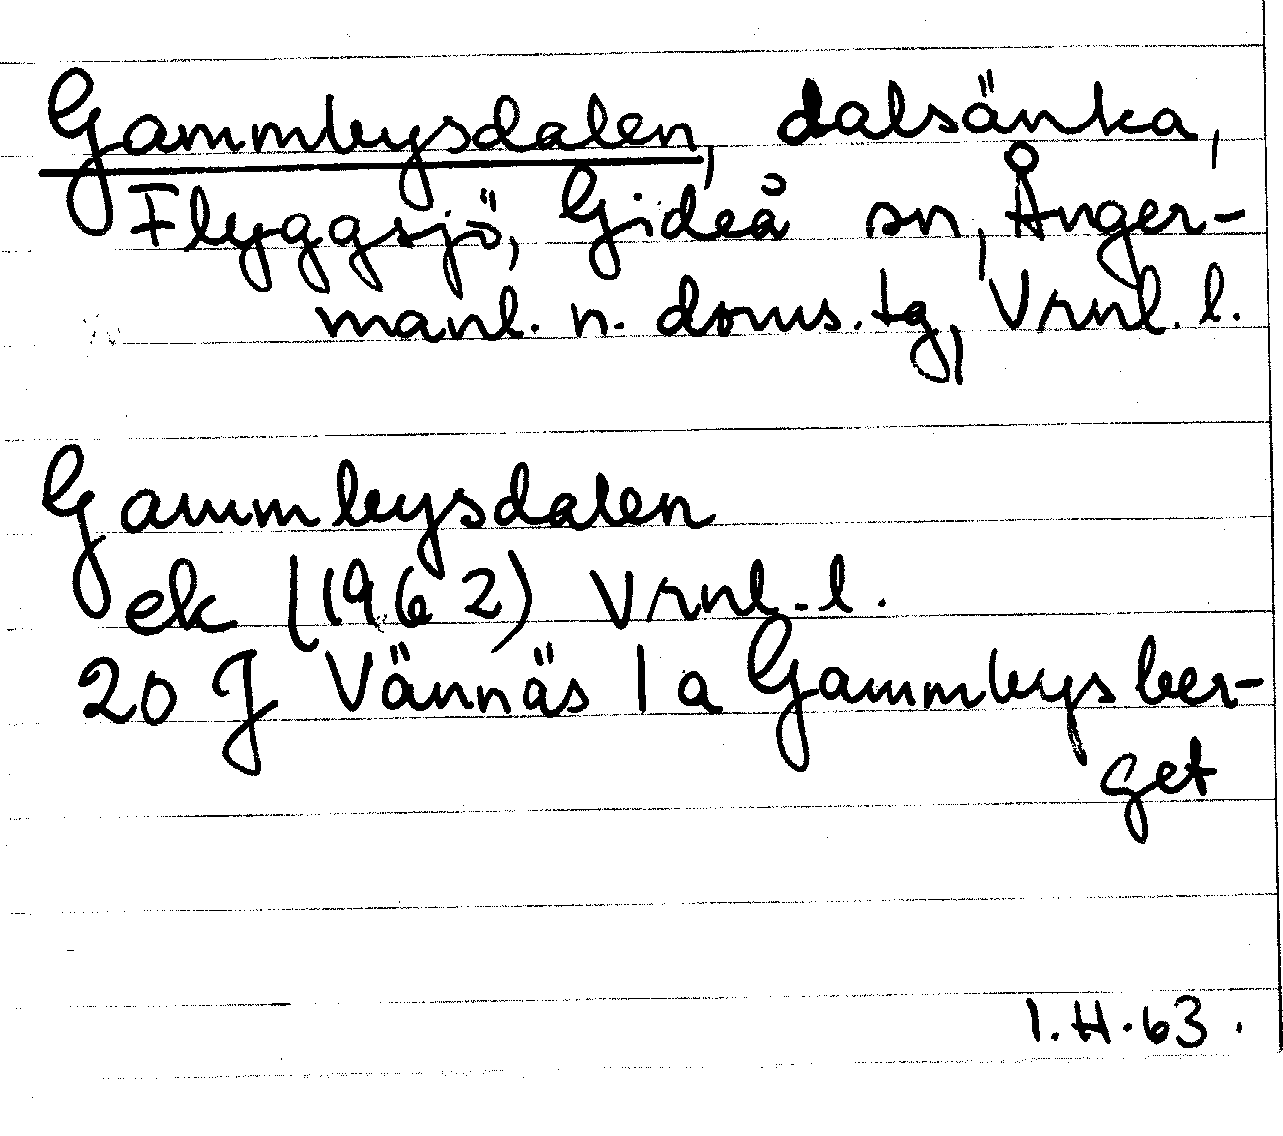 Gammbysdalen, dalsänka,
Flyggsjö, Gideå sn, Ånger-
manl. n. doms. tg, Vrnl. l.
Gammbysdalen
ek (1962) Vrnl. l.
20 J Vännäs 1 a Gammbysber-
get
I.H. 63.